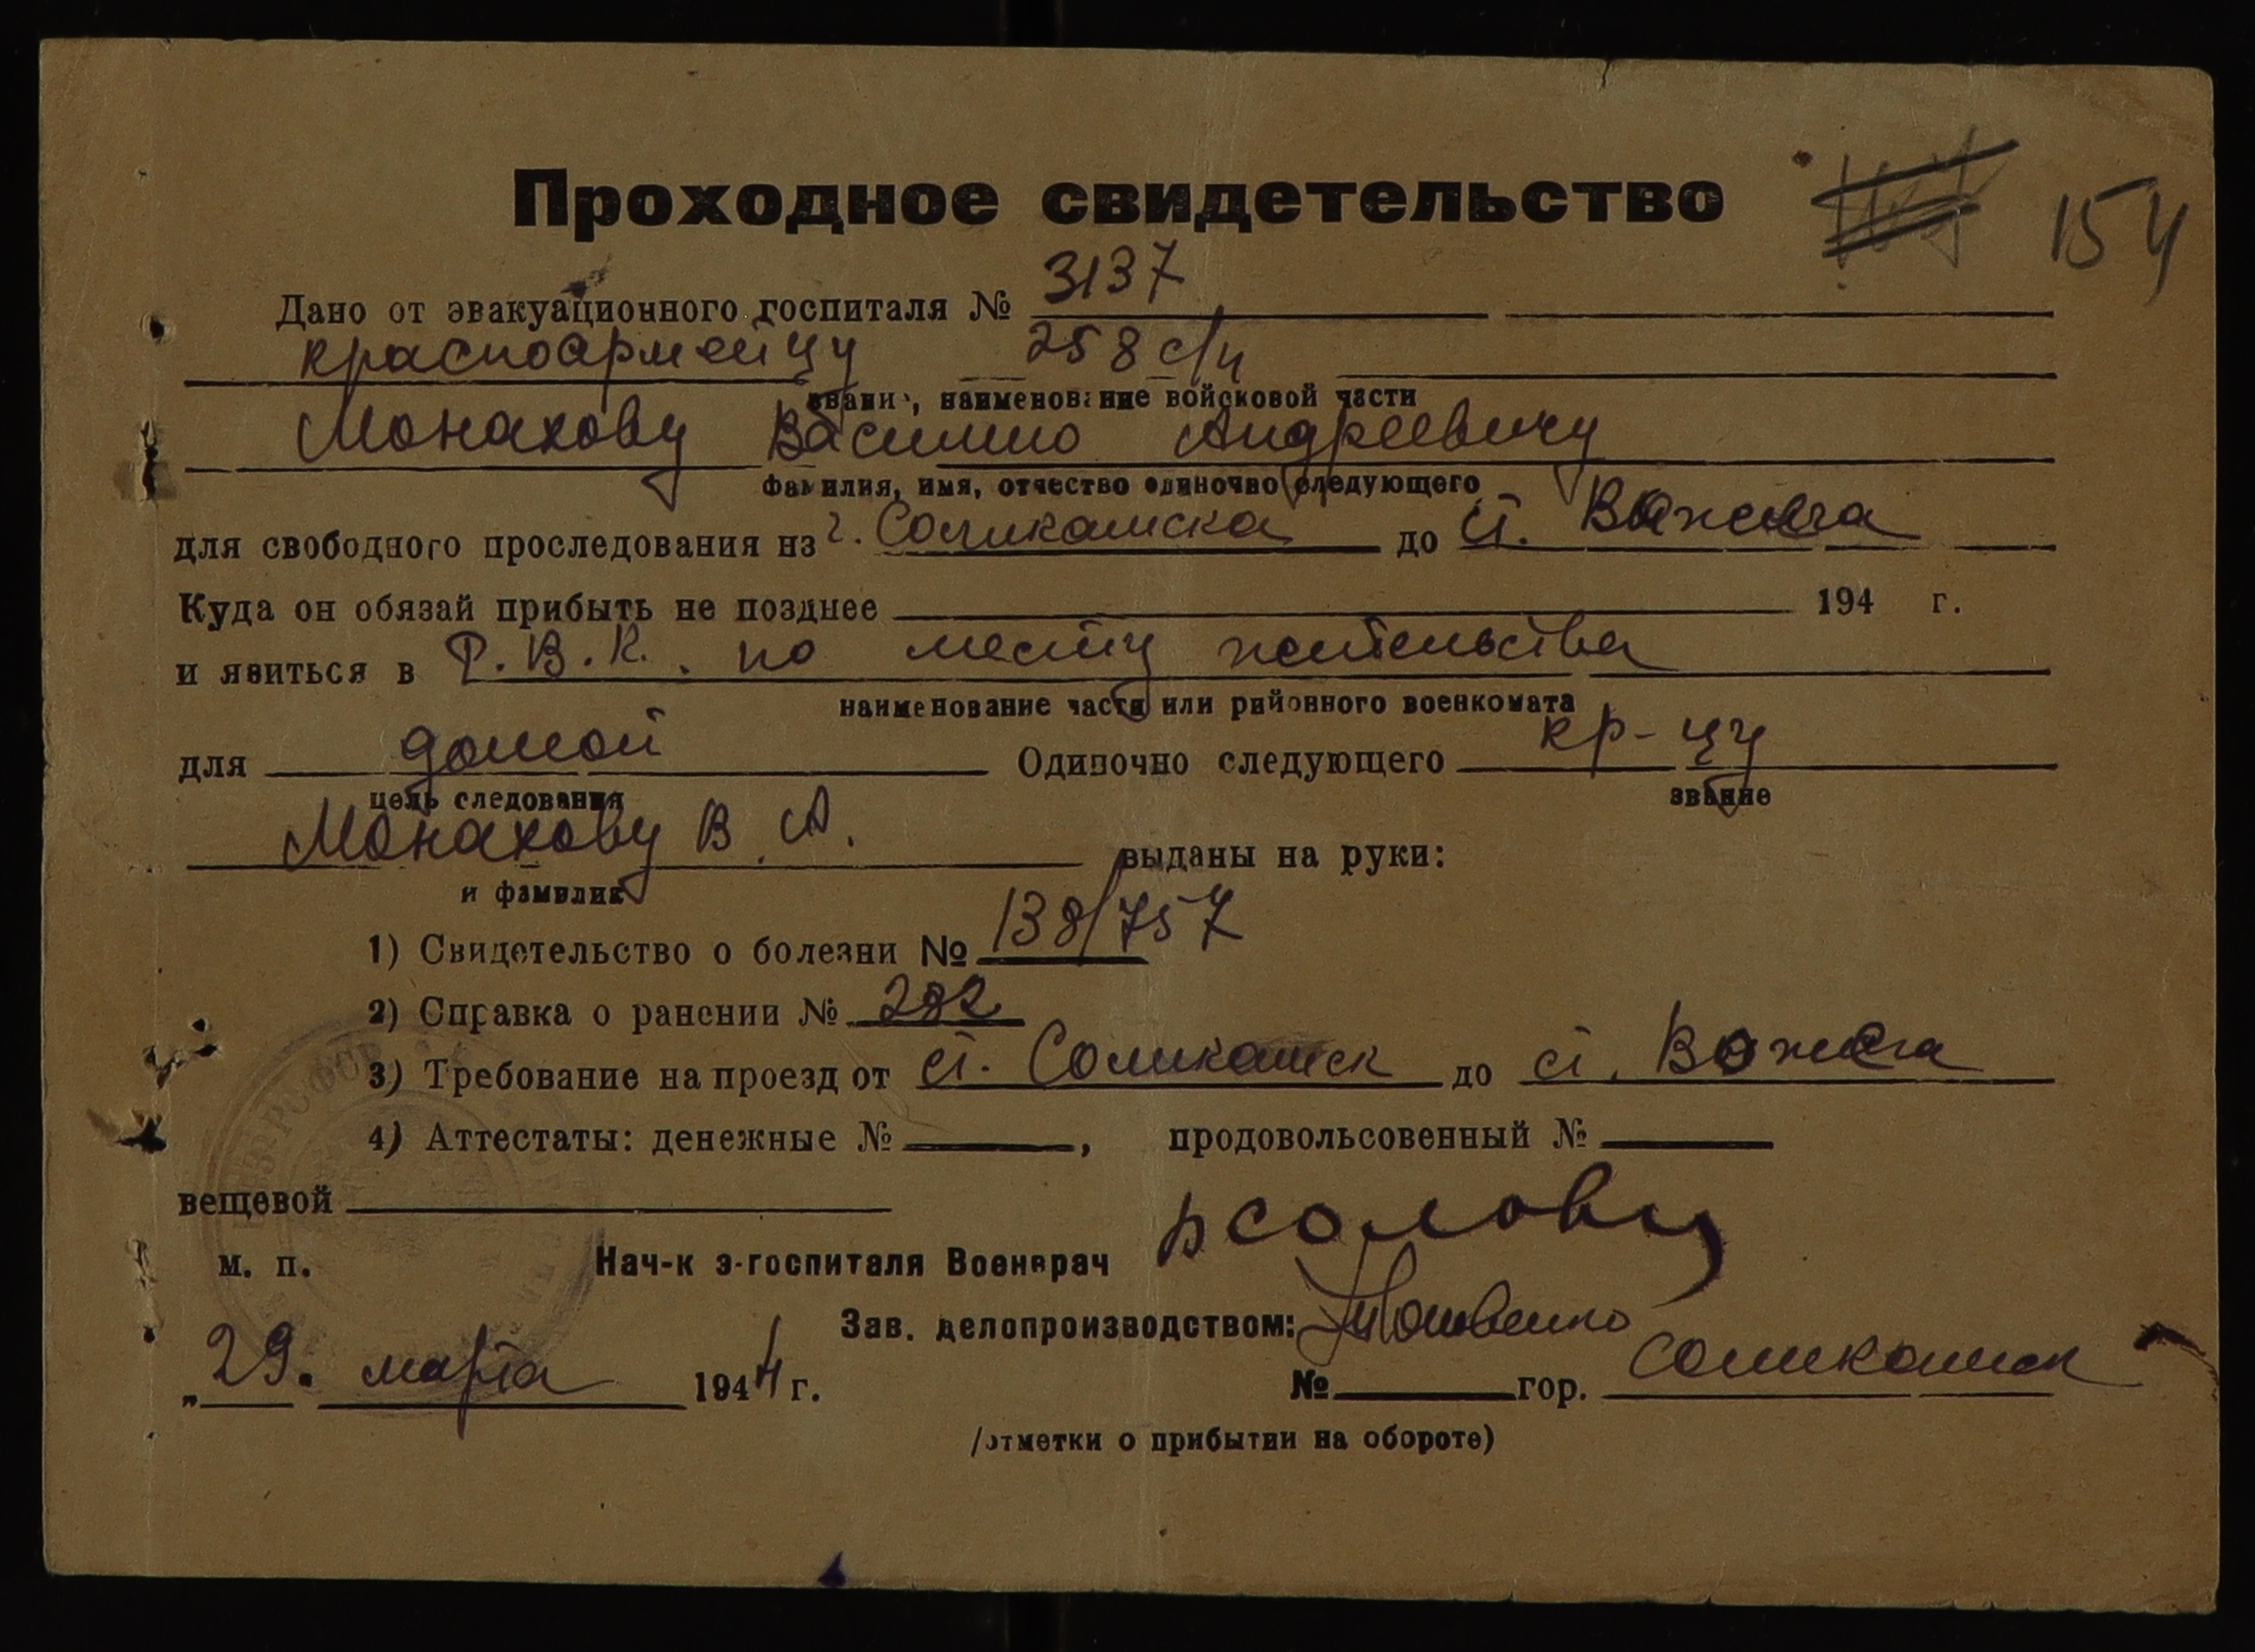 Проходное свидетельство
154
Дано от эвакуационного госпиталя № 3137
красноармейцу 258 с/п
звание, наименование войсковой части
Монахову Василию Андреевичу
фамилия, имя, отчество одиночно следующего
для свободного проследования из г. Соликамска до ст. Вожега
Куда он обязай прибыть не позднее 194 г.
и явиться в Р.В.К. по месту жительства
наименование части или рийонного военкомата
для домой Одиночно следующего кр-цу
цель следования звание
Монахову В. А. выданы на руки:
и фамилия
1) Свидетельство о болезни № 138/757
2) Справка о ранении № 282
3) Требование на проезд от ст. Соликамск до ст. Вожега
4) Аттестаты: денежные № , продовольсовенный №
вещевой
м. п. Нач-к э-госпиталя Военврач
Зав. делопроизводством:
„29. марта 1944 г. № гор. Соликамск
/отметки о прибытии на обороте)